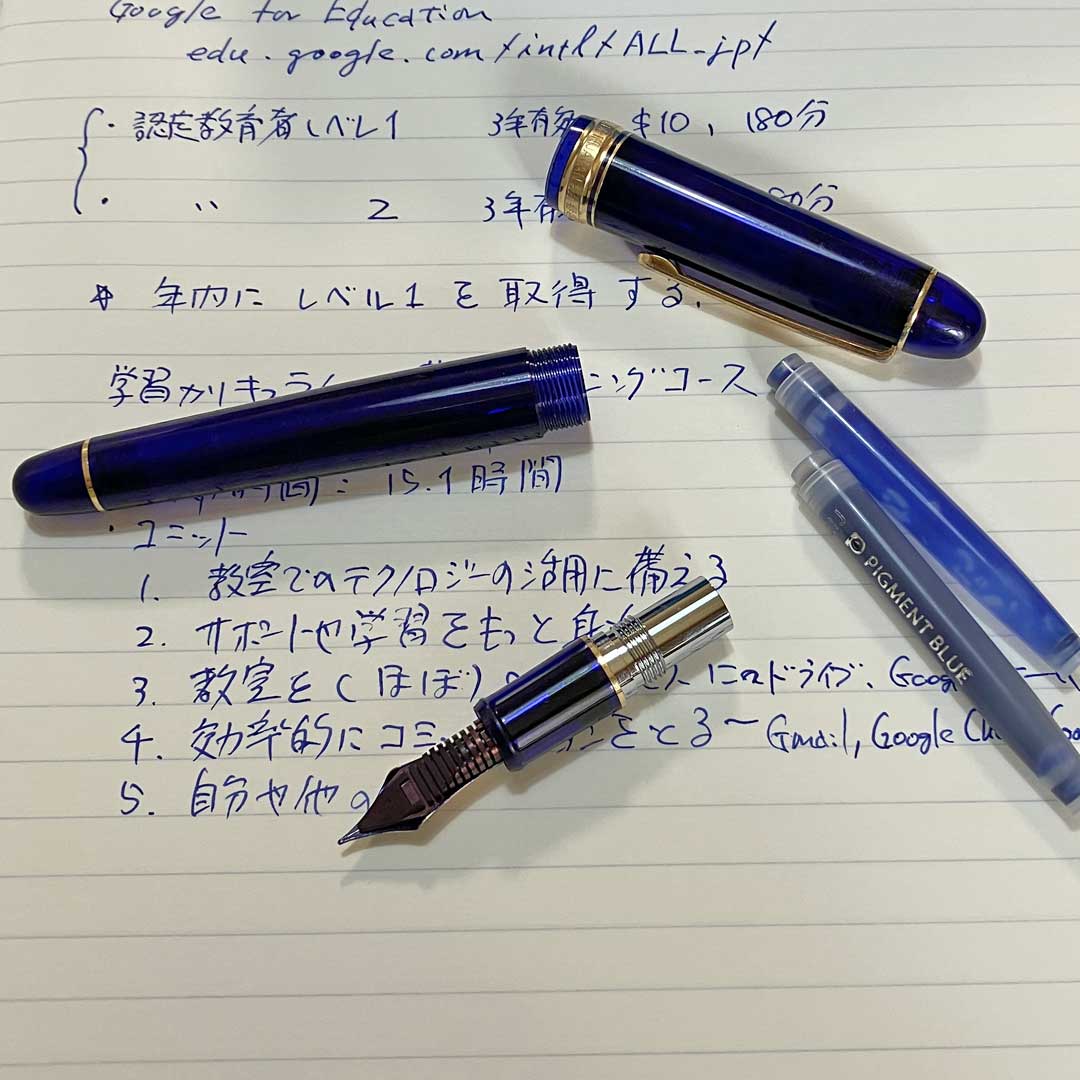 Google for Education
edu.google.com/intl/ALL_jp/
・認定教育者レベル1 3年有効 $10、180分
・ 〃 2 3年有 80分
☆ 年内にレベル1を取得する.
学習カリキュラ ニングコース
時間: 15.1時間
・ユニット
1. 教室でのテクノロジーの活用に備える
2. サポートや学習をもっと
3. 教室を(ほぼ) にdドライブ、Goog
4. 効率的にコミ をとる〜Gmail, Google Ch Goo
5. 自分や他の
PIGMENT BLUE